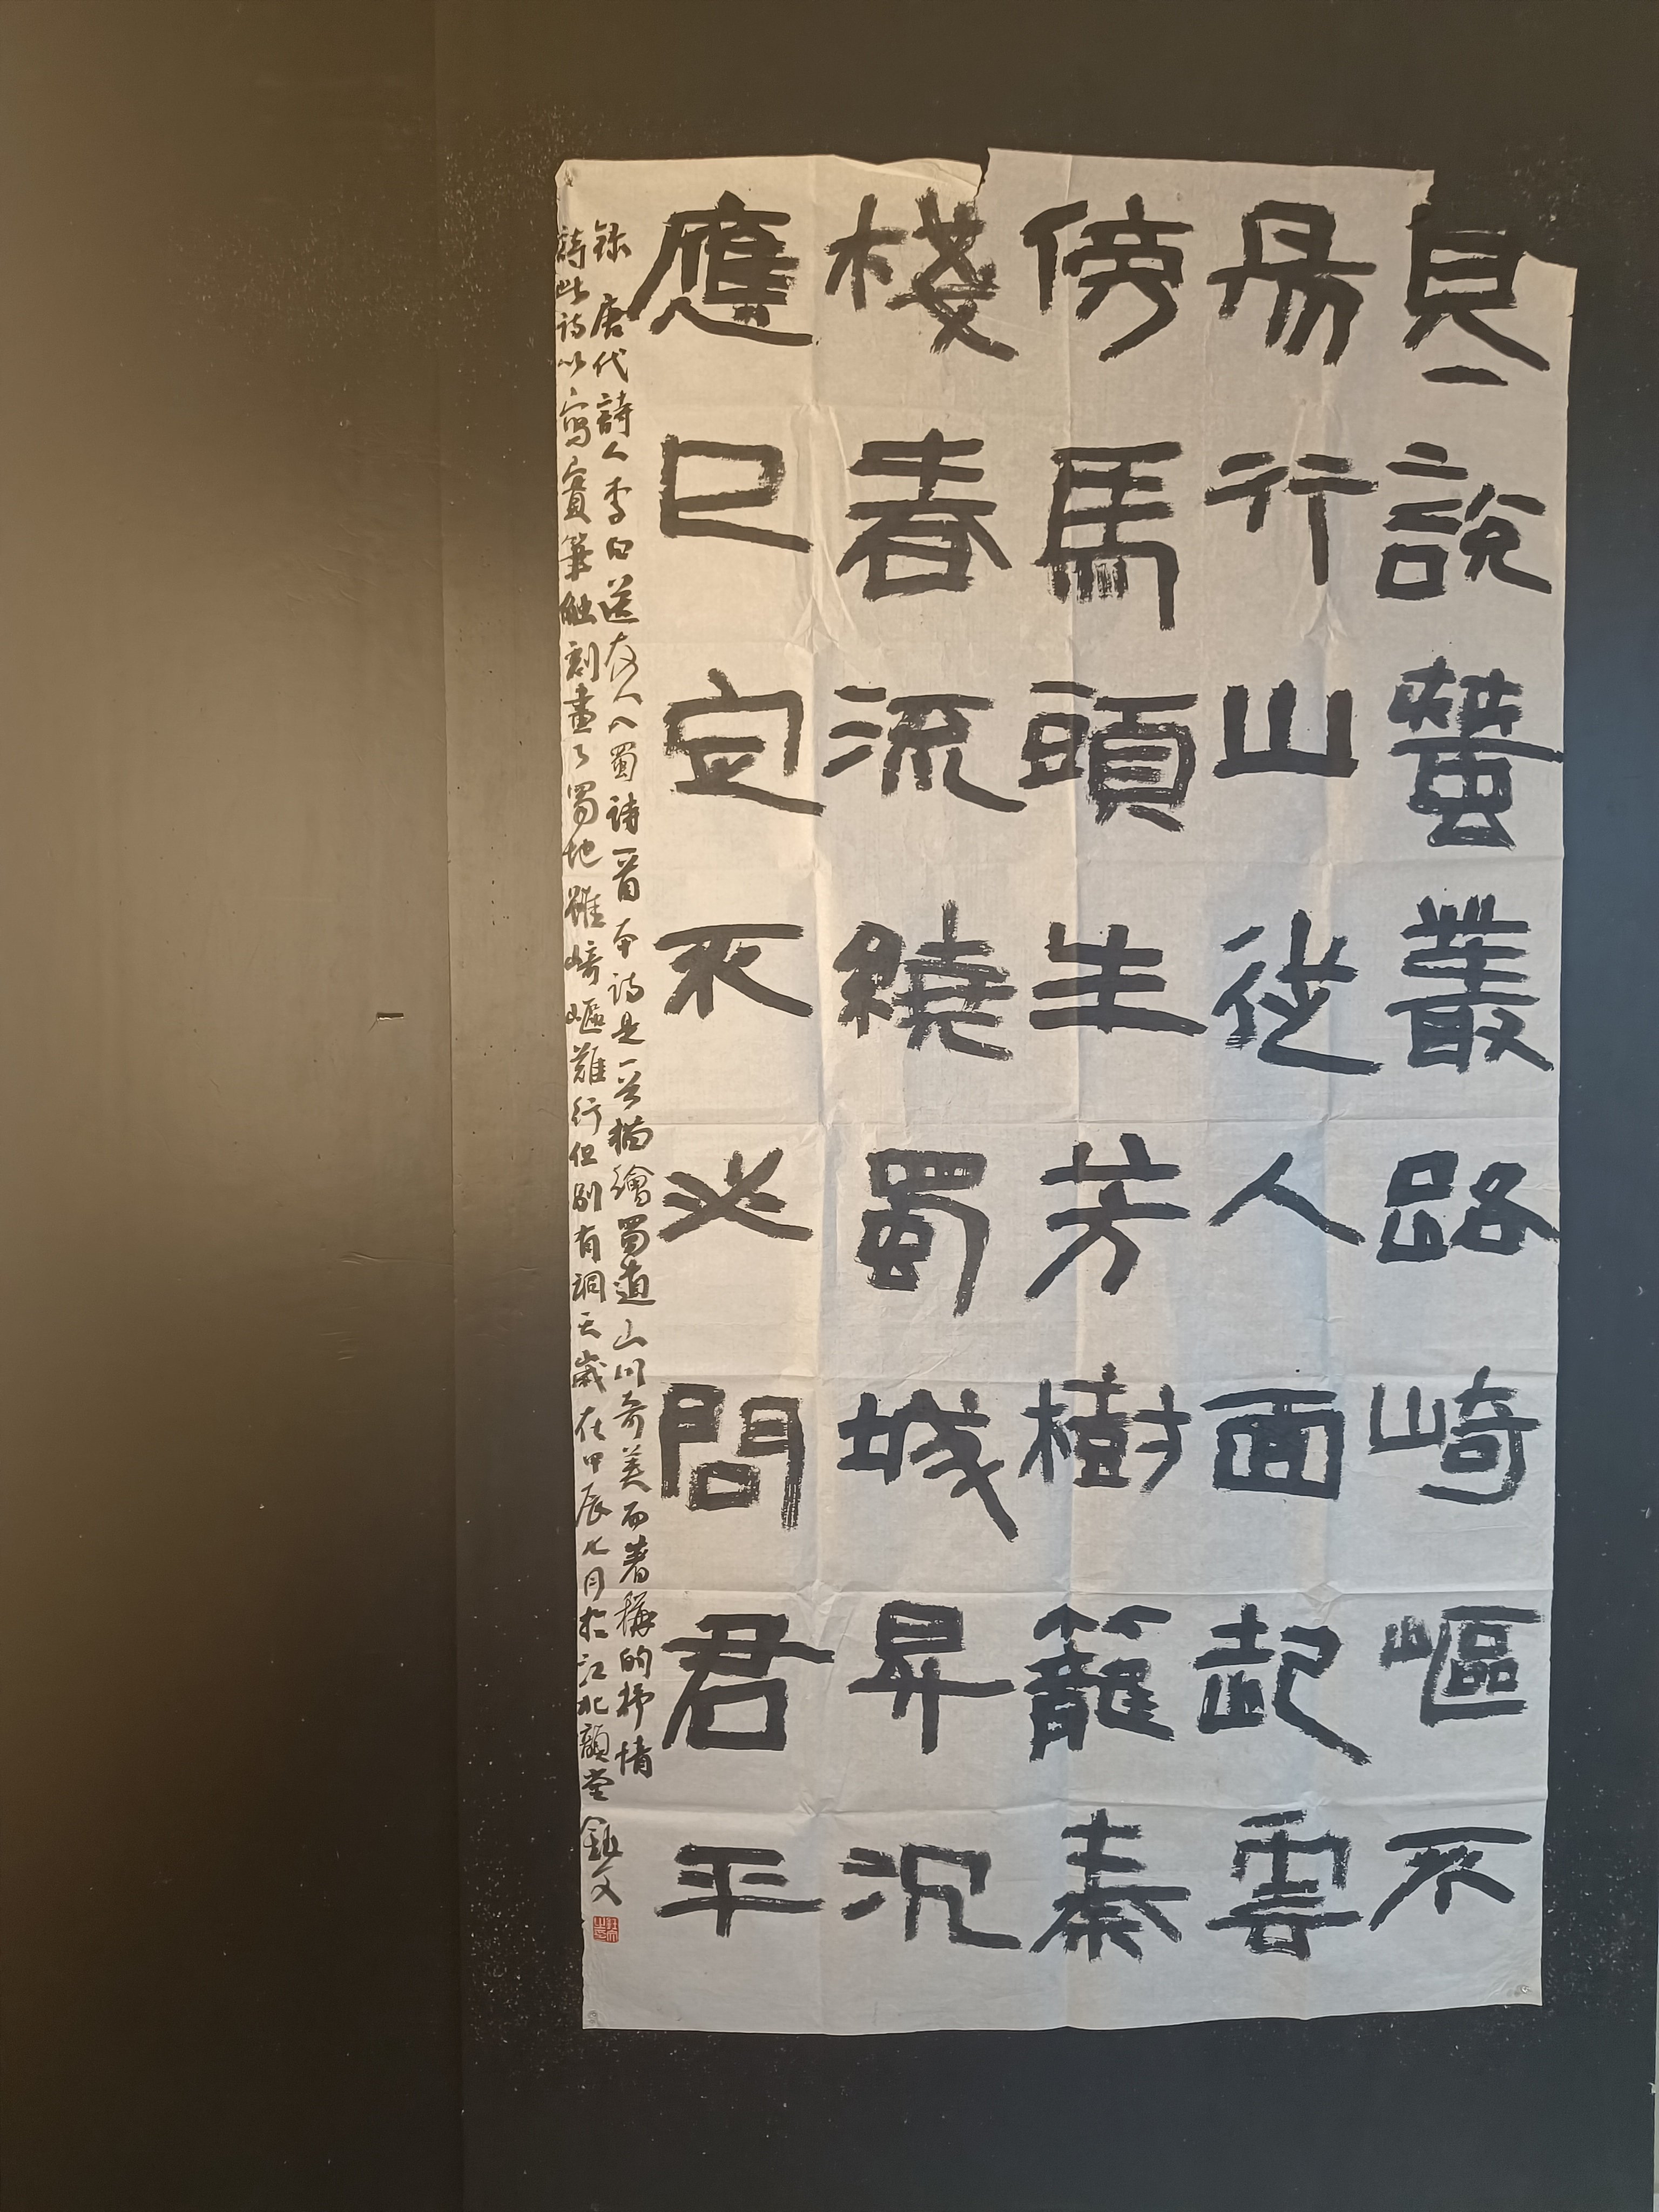 見說蠶叢路崎嶇不
易行山從人面起雲
傍馬頭生芳樹籠秦
棧春流繞蜀城昇沉
應已定不必問君平
錄唐代詩人李白送友人入蜀詩一首本詩是一首描繪蜀道山川奇美而著稱的抒情
詩此詩以寫實筆觸刻畫了蜀地雖崎嶇難行但別有洞天歲在甲辰七月於江北堂文